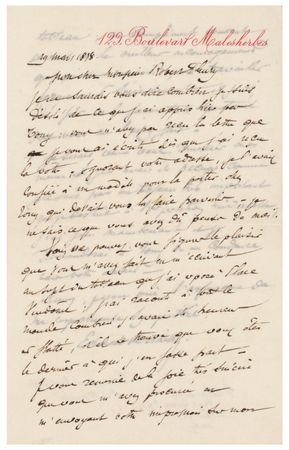 129. Boulevart Malesherbes
29 mars 1878
Mon cher Monsieur Robert Fleury
Je ne saurais vous dire combien je suis
désolé de ce que j'ai appris hier par
Tony vous n'avez pas reçu la lettre que
je vous ai écrit dès que j'ai reçu
la votre, ignorant votre adresse, je l'avais
confiée à un modèle pour la porter chez
Tony qui devait vous la faire parvenir. je
ne sais ce que vous avez dû penser de moi.
Vous ne pouvez vous figurer le plaisir
que vous m'avez fait en m'écrivant
au sujet du tableau que j'ai exposé Place
Vendôme. J'ai raconté à tout le
monde combien j'avais été heureux
et flatté, et il se trouve que vous êtes
le dernier à qui j'en fasse part
Je vous remercie de la joie très sincère
que vous m'avez procurée en
m'envoyant votre impression sur mon